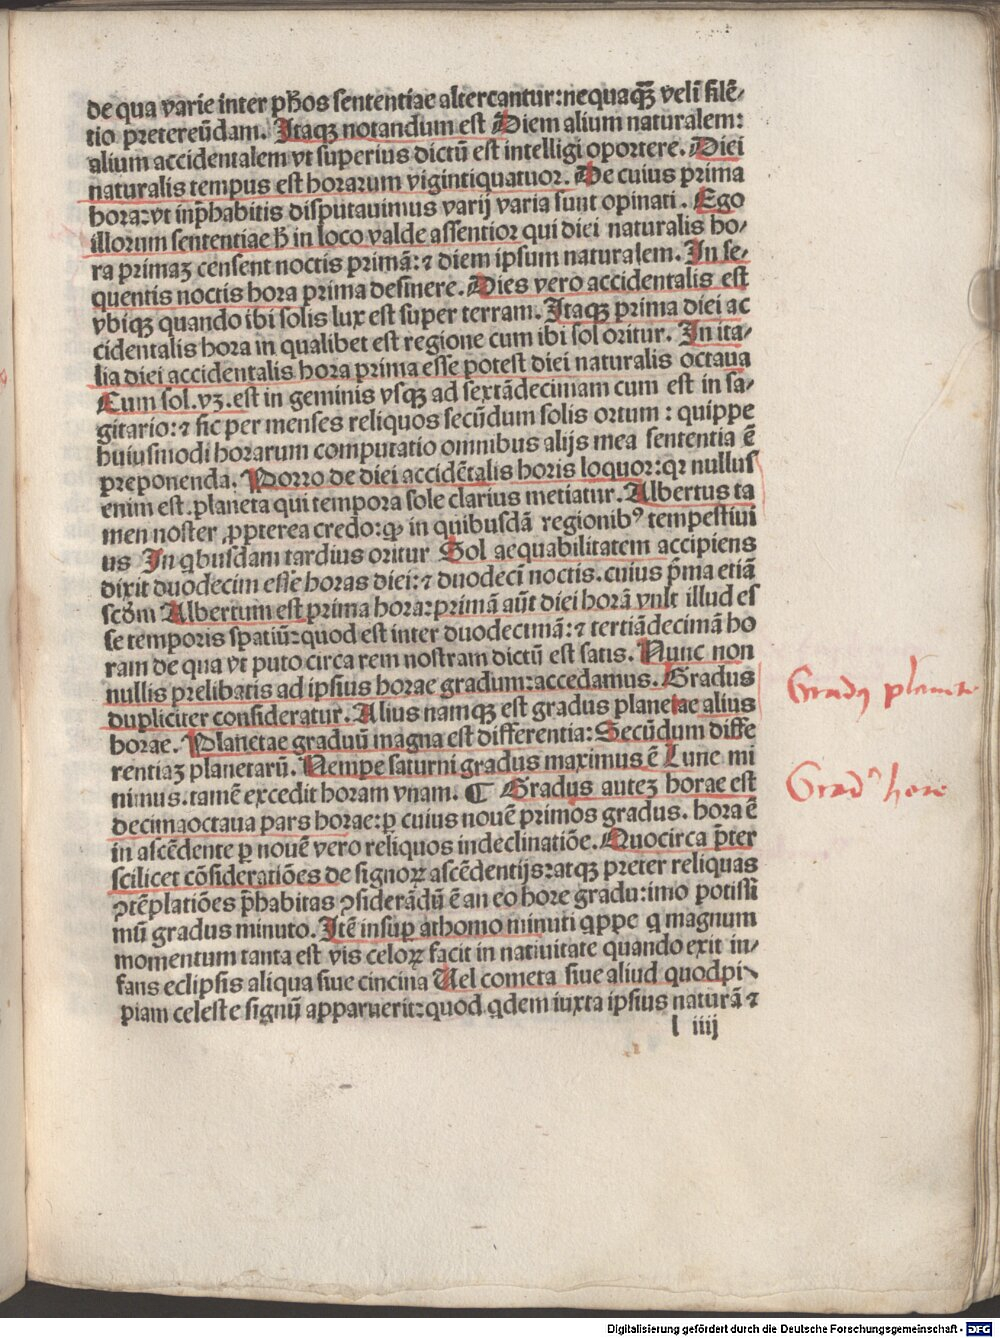 de qua varie inter ph̄os sententiae altercantur: nequaqꝫ̄ velī silē⸗
tio pretereūdam. Itaqꝫ notandum est Diem alium naturalem:
alium accidentalem vt superius dictū est intelligi oportere. Diei
naturalis tempus est horarum vigintiquatuor. De cuius prima
hora: vt inp̄habitis disputauimus varij varia sunt opinati. Ego
illorum sententiae h̄ in loco valde assentior qui diei naturalis ho⸗
ra primaꝫ censent noctis primā: ⁊ diem ipsum naturalem. In se⸗
quentis noctis hora prima desinere. Dies vero accidentalis est
vbiqꝫ quando ibi solis lux est super terram. Itaqꝫ prima diei ac
cidentalis hora in qualibet est regione cum ibi sol oritur. In ita⸗
lia diei accidentalis hora prima esse potest diei naturalis octaua
Cum sol .vꝫ. est in geminis vsqꝫ ad sextādecimam cum est in sa⸗
gitario: ⁊ sic per menses reliquos secūdum solis ortum : quippe
huiusmodi horarum computatio omnibus alijs mea sententia ē
preponenda. Porro de diei accidētalis horis loquor: qꝛ nullus
enim est .planeta qui tempora sole clarius metiatur. Albertus ta
men noster ꝓpterea credo: ꝙ in quibusdā regionibꝰ tempestiui
us In qbusdam tardius oritur Sol aequabilitatem accipiens
dixit duodecim esse horas diei: ⁊ duodecī noctis. cuius p̄ma etiā
scd̄m Albertum est prima hora: primā aūt diei horā vult illud es
se temporis spatiū: quod est inter duodecimā: ⁊ tertiādecimā ho
ram de qua vt puto circa rem nostram dictū est satis. Nunc non
nullis prelibatis ad ipsius horae gradum: accedamus. Gradus
dupliciter consideratur. Alius namqꝫ est gradus planetae alius
horae. Planetae graduū magna est differentia: Secūdum diffe
rentiaꝫ planetarū. Nempe saturni gradus maximus ē Lune mi
nimus. tamē excedit horam vnam. ¶ Gradus auteꝫ horae est
decimaoctaua pars horae: ꝑ cuius nouē primos gradus. hora ē
in ascēdente ꝑ nouē vero reliquos indeclinatiōe. Quocirca p̄ter
scilicet cōsideratiōes de signoꝝ ascēdentijs: atqꝫ preter reliquas
ꝯtēplatiōes p̄habitas ꝯsiderādū ē an eo hore gradu: imo potissi
mū gradus minuto. Itē insuꝑ athomo minuti qppe q magnum
momentum tanta est vis celoꝝ facit in natiuitate quando exit in⸗
fans eclipsis aliqua siue cincina Uel cometa siue aliud quodpi⸗
piam celeste signū apparuerit: quod qdem iuxta ipsius naturā ⁊
l iiij
Gradꝰ planete
Gradꝰ hore
Digitalisierung gefördert durch die Deutsche Forschungsgemeinschaft - DFG